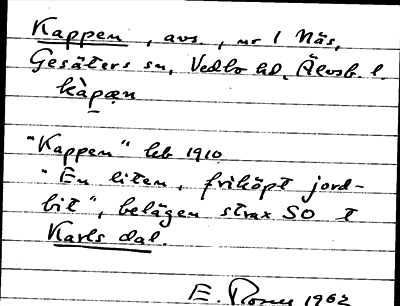 Kappen, avs., nr 1 Näs,
Gesäters sn, Vedbo hd, Älvsb. l.
kàpæn
"Kappen" kb 1910
"En liten, friköpt jord-
bit", belägen strax SO t
Karls dal.
E. 1962